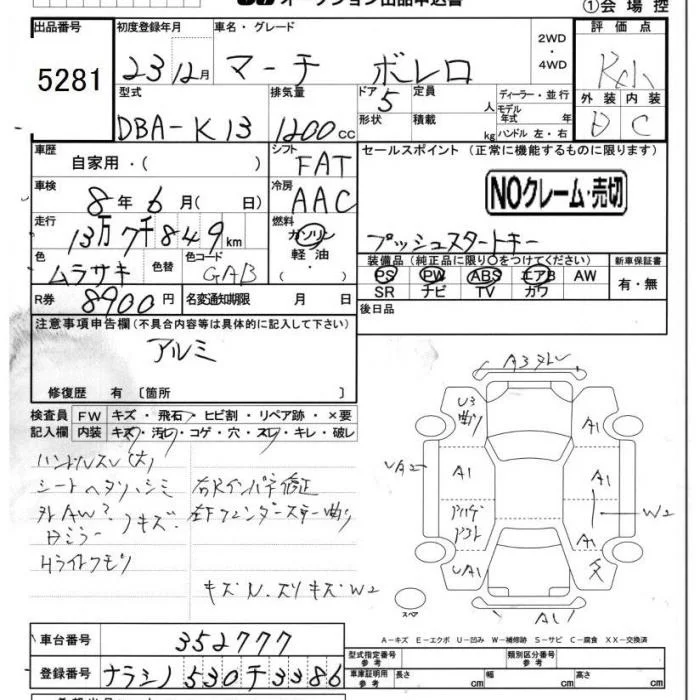 オークション出品申込書 ①会場控
出品番号 初度登録年月 車名・グレード 評価点
5281 23 12月 マーチ ボレロ 2WD・4WD
型式 排気量 ドア 定員 ディーラー・並行 外装 内装
DBA-K13 1200cc 5 人 モデル年式 年 D C
形状 積載 kg ハンドル 左・右
車歴 シフト セールスポイント (正常に機能するものに限ります)
自家用・( ) FAT
車検 冷房 NOクレーム・売切
8年6月( 日) AAC
走行 燃料
13万7千849km ガソリン・軽油・ プッシュスタートキー
色 色替 色コード 装備品(純正品に限り○をつけてください) 新車保証書
ムラサキ GAB PS PW ABS エアB AW 有・無
SR ナビ TV カワ
R券 8900円 名変通知期限 月 日 後日品
注意事項申告欄(不具合内容等は具体的に記入して下さい)
アルミ
修復歴 有 〔箇所 〕
検査員 FW キズ・飛石・ヒビ割・リペア跡・×要
記入欄 内装 キズ・汚レ・コゲ・穴・スレ・キレ・破レ
ハンドルスレ(大)
シートヘタリ・シミ 右Rインパネ修正
外AW? キズ 左Fフェンダーステー曲り
Hライトクモリ
キズ N.スリキズW2
U3 曲り A1
UA2 A1 W2
A1
UA1
スペア A1
A-キズ E-エクボ U-凹み W-補修跡 S-サビ C-腐食 XX-交換済
車台番号 352777 型式指定番号 参考 類別区分番号 参考
登録番号 ナラシノ530チ3386 車庫証明用 参考 長さ cm 幅 cm 高さ cm